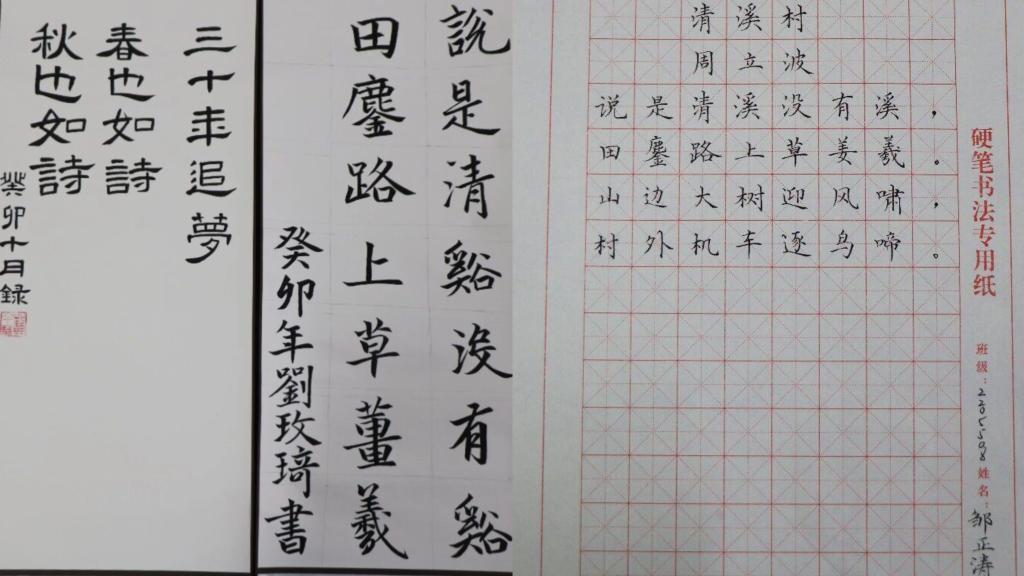 三十年追夢
春也如詩
秋也如詩
癸卯十月錄
說是清谿沒有谿
田鏖路上草董羲
癸卯年劉玫琦書
清溪村
周立波
说是清溪没有溪，
田鏖路上草姜羲。
山边大树迎风啸，
村外机车逐鸟啼。
硬笔书法专用纸
班级： 姓名：邹正涛